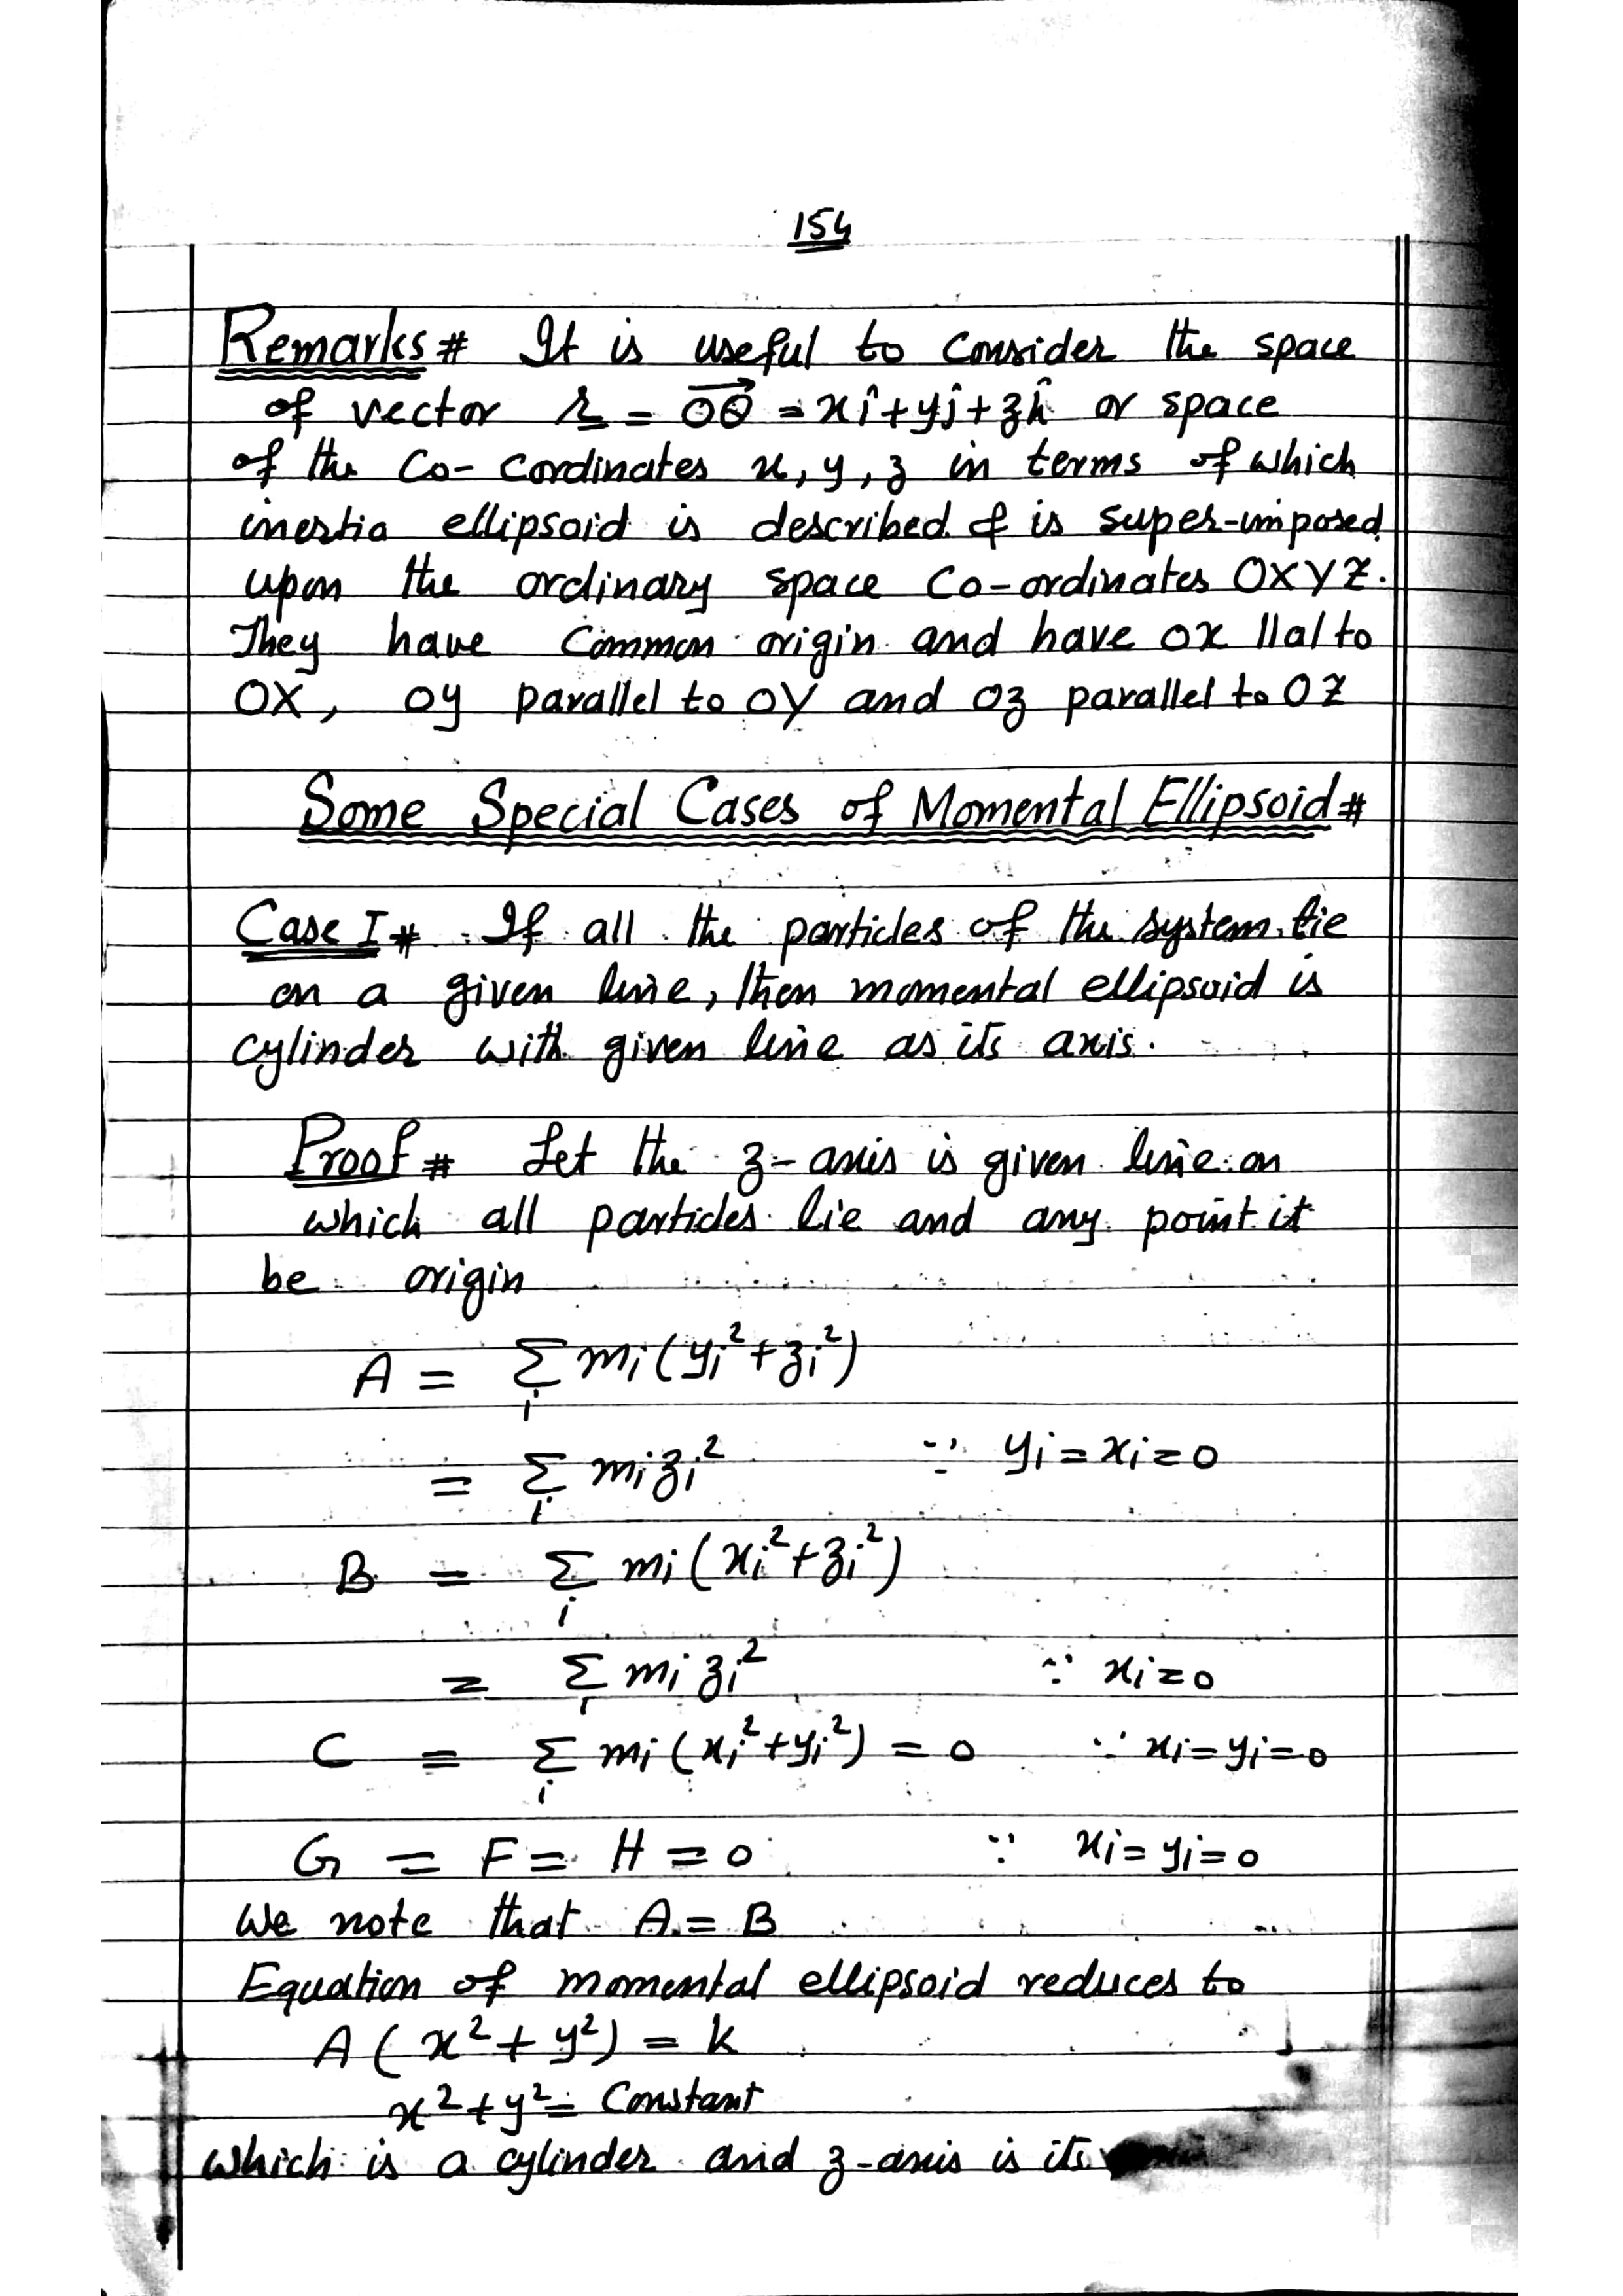 154
Remarks# It is useful to consider the space
of vector r = OQ = xî+yĵ+zk̂ or space
of the Co-cordinates x, y, z in terms of which
inertia ellipsoid is described & is super-imposed
upon the ordinary space Co-ordinates OXYZ.
They have Common origin and have ox llal to
OX, oy parallel to OY and oz parallel to OZ
Some Special Cases of Momental Ellipsoid#
Case I# If all the particles of the system lie
on a given line, then momental ellipsoid is
cylinder with given line as its axis.
Proof# Let the z-axis is given line on
which all particles lie and any point it
be origin
A = Σᵢ mᵢ(yᵢ²+zᵢ²)
= Σᵢ mᵢzᵢ² ∵ yᵢ=xᵢ=0
B = Σᵢ mᵢ(xᵢ²+zᵢ²)
= Σᵢ mᵢzᵢ² ∵ xᵢ=0
C = Σᵢ mᵢ(xᵢ²+yᵢ²) = 0 ∵ xᵢ=yᵢ=0
G = F = H = 0 ∵ xᵢ=yᵢ=0
We note that A = B
Equation of momental ellipsoid reduces to
A(x²+y²) = k
x²+y² = Constant
which is a cylinder and z-axis is its